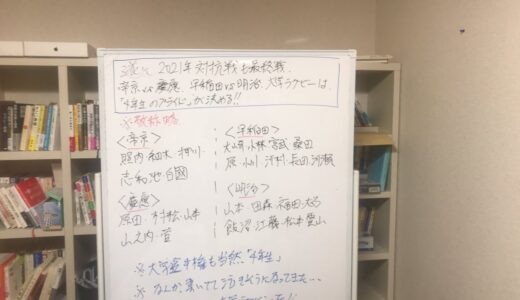 遂に、2021年対抗戦も最終戦
帝京 vs 慶應 早稲田 vs 明治 大学ラグビーは、
"4年生のプライド"が決める!!
※敬称略
<帝京>
細木・押川・
志和池・白國
<慶應>
原田・村松・山本
山之内・菅
<早稲田>
大﨑・小林・宮武・桑田
原・小川・河村・長田・河瀬
<明治>
山本・田森・福田・大石
飯沼・江藤・松本・雲山
※大学選手権も当然"4年生"
※なんか書いてて泣きそうになってきた…